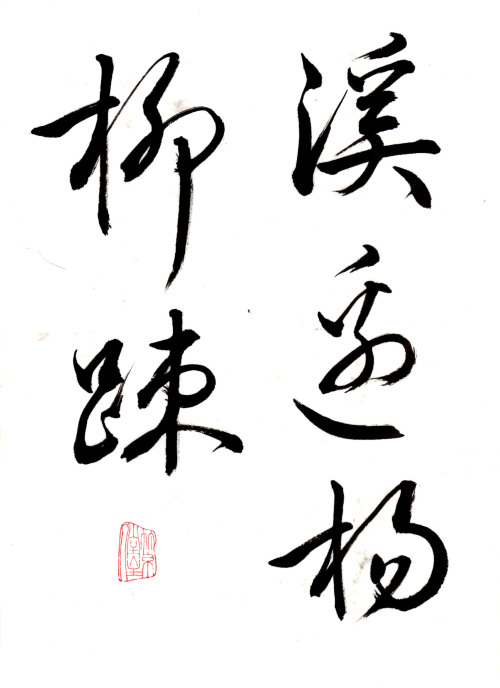 溪邊楊
柳踈